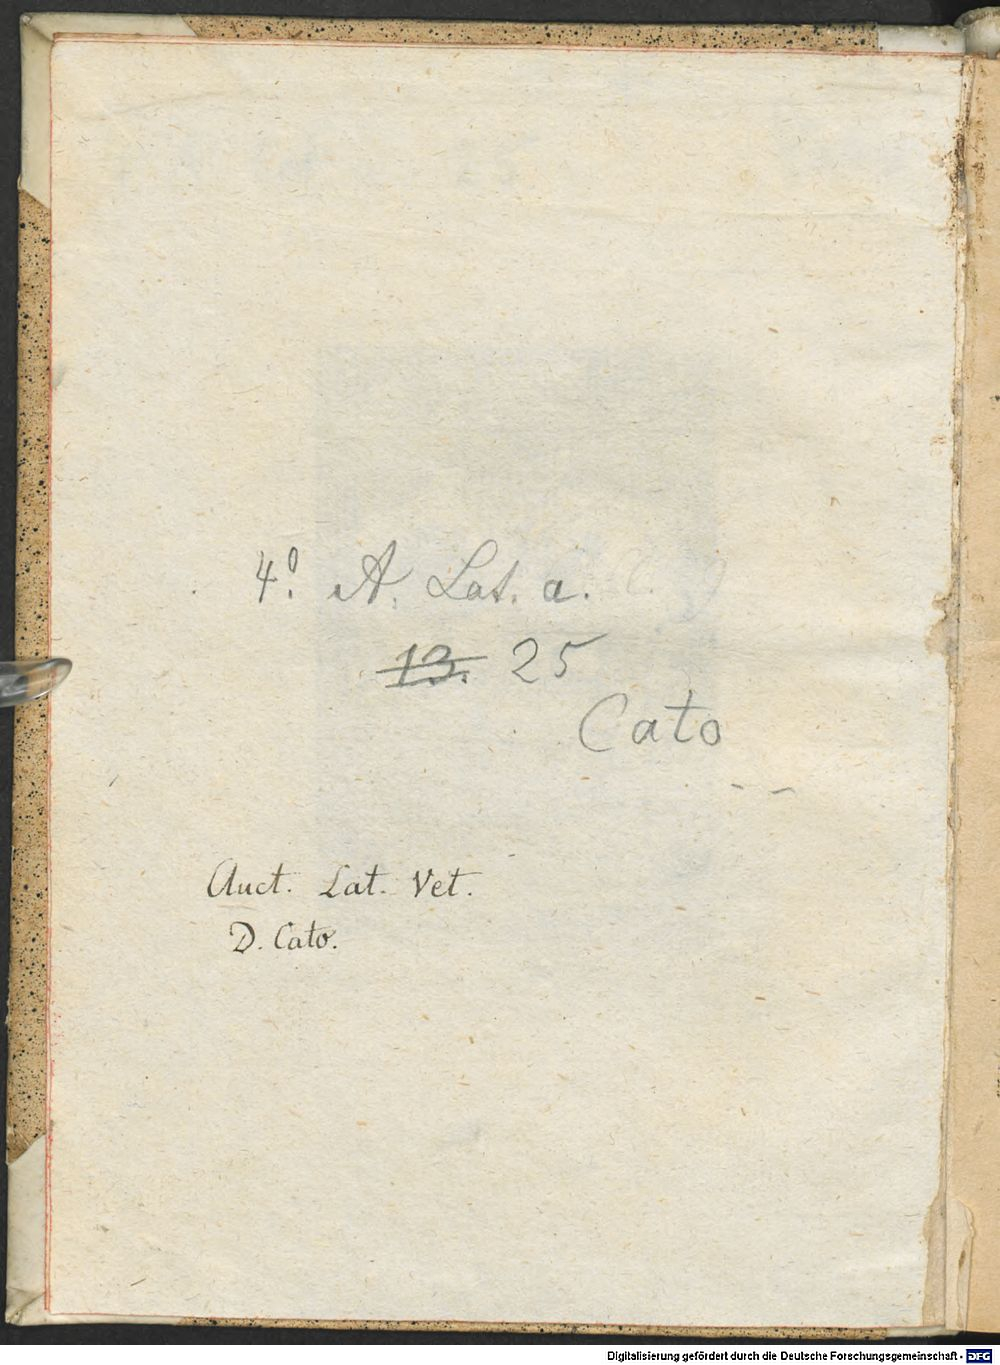 4º A. Lat. a.
13. 25
Cato
Auct. Lat. Vet.
D. Cato.
Digitalisierung gefördert durch die Deutsche Forschungsgemeinschaft - DFG